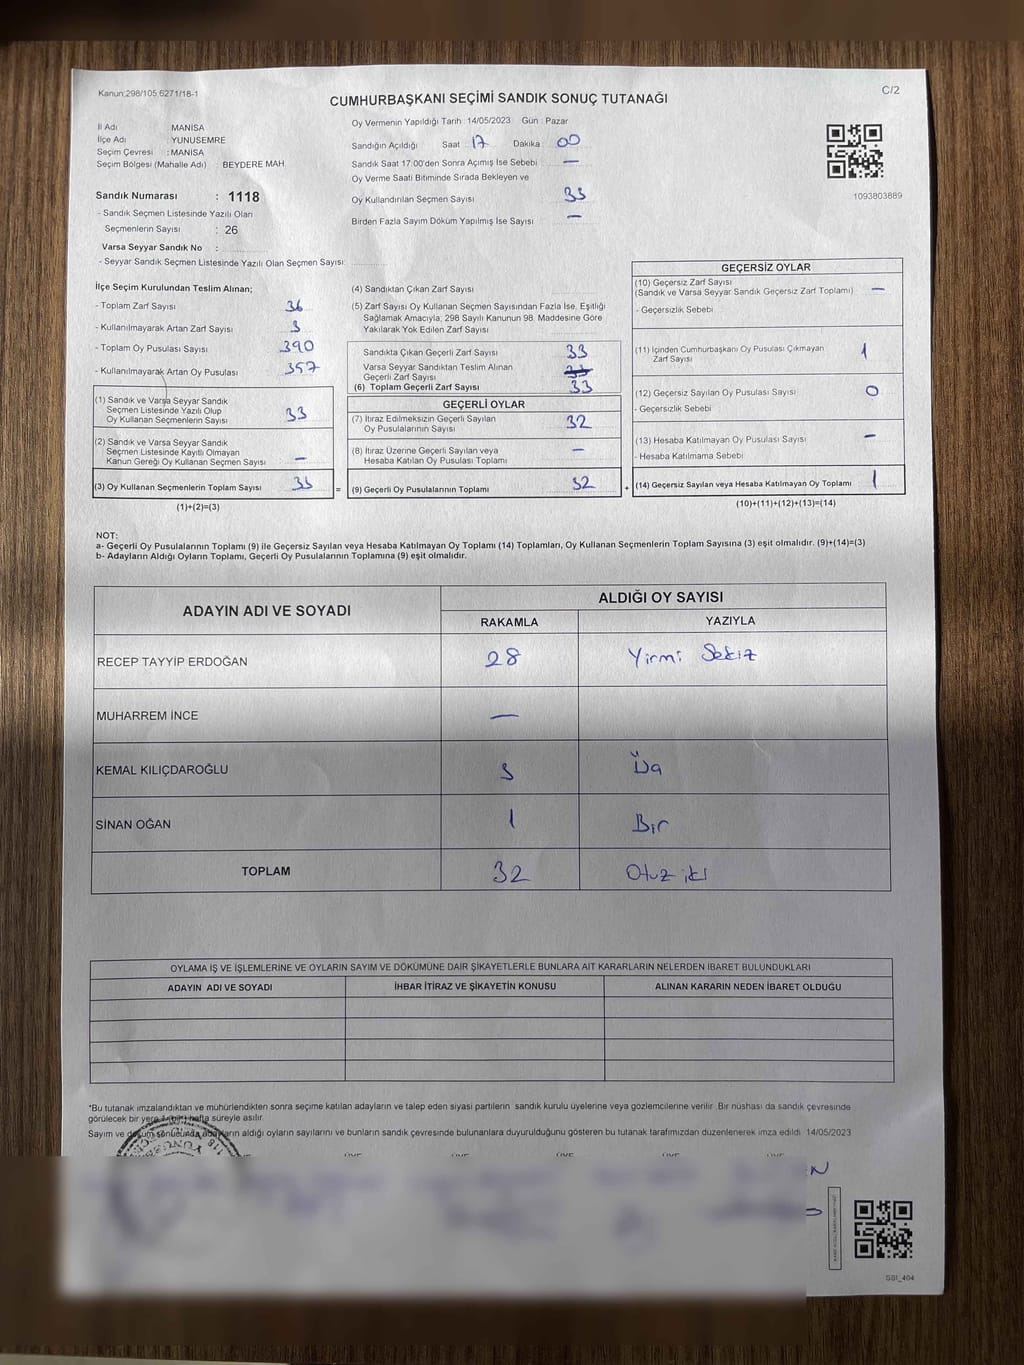 Kanun:298/105,6271/18-1
C/2
CUMHURBAŞKANI SEÇİMİ SANDIK SONUÇ TUTANAĞI
İl Adı MANİSA
İlçe Adı YUNUSEMRE
Seçim Çevresi : MANİSA
Seçim Bölgesi (Mahalle Adı) : BEYDERE MAH.
Sandık Numarası : 1118
- Sandık Seçmen Listesinde Yazılı Olan
Seçmenlerin Sayısı : 26
Varsa Seyyar Sandık No :
- Seyyar Sandık Seçmen Listesinde Yazılı Olan Seçmen Sayısı:
Oy Vermenin Yapıldığı Tarih : 14/05/2023 Gün : Pazar
Sandığın Açıldığı Saat 17 Dakika 00
Sandık Saat 17.00'den Sonra Açımış İse Sebebi —
Oy Verme Saati Bitiminde Sırada Bekleyen ve
Oy Kullandırılan Seçmen Sayısı 33
Birden Fazla Sayım Döküm Yapılmış İse Sayısı —
1093803889
İlçe Seçim Kurulundan Teslim Alınan;
- Toplam Zarf Sayısı 36
- Kullanılmayarak Artan Zarf Sayısı 3
- Toplam Oy Pusulası Sayısı 390
- Kullanılmayarak Artan Oy Pusulası 357
(1) Sandık ve Varsa Seyyar Sandık
Seçmen Listesinde Yazılı Olup
Oy Kullanan Seçmenlerin Sayısı 33
(2) Sandık ve Varsa Seyyar Sandık
Seçmen Listesinde Kayıtlı Olmayan
Kanun Gereği Oy Kullanan Seçmen Sayısı —
(3) Oy Kullanan Seçmenlerin Toplam Sayısı 33 =
(1)+(2)=(3)
(4) Sandıktan Çıkan Zarf Sayısı
(5) Zarf Sayısı Oy Kullanan Seçmen Sayısından Fazla İse, Eşitliği
Sağlamak Amacıyla; 298 Sayılı Kanunun 98. Maddesine Göre
Yakılarak Yok Edilen Zarf Sayısı
Sandıkta Çıkan Geçerli Zarf Sayısı 33
Varsa Seyyar Sandıktan Teslim Alınan
Geçerli Zarf Sayısı
(6) Toplam Geçerli Zarf Sayısı 33
GEÇERLİ OYLAR
(7) İtiraz Edilmeksizin Geçerli Sayılan
Oy Pusulalarının Sayısı 32
(8) İtiraz Üzerine Geçerli Sayılan veya
Hesaba Katılan Oy Pusulası Toplamı —
(9) Geçerli Oy Pusulalarının Toplamı 32 +
GEÇERSİZ OYLAR
(10) Geçersiz Zarf Sayısı
(Sandık ve Varsa Seyyar Sandık Geçersiz Zarf Toplamı) —
- Geçersizlik Sebebi
(11) İçinden Cumhurbaşkanı Oy Pusulası Çıkmayan
Zarf Sayısı 1
(12) Geçersiz Sayılan Oy Pusulası Sayısı 0
- Geçersizlik Sebebi
(13) Hesaba Katılmayan Oy Pusulası Sayısı —
- Hesaba Katılmama Sebebi
(14) Geçersiz Sayılan veya Hesaba Katılmayan Oy Toplamı 1
(10)+(11)+(12)+(13)=(14)
NOT:
a- Geçerli Oy Pusulalarının Toplamı (9) ile Geçersiz Sayılan veya Hesaba Katılmayan Oy Toplamı (14) Toplamları, Oy Kullanan Seçmenlerin Toplam Sayısına (3) eşit olmalıdır. (9)+(14)=(3)
b- Adayların Aldığı Oyların Toplamı, Geçerli Oy Pusulalarının Toplamına (9) eşit olmalıdır.
ADAYIN ADI VE SOYADI
ALDIĞI OY SAYISI
RAKAMLA YAZIYLA
RECEP TAYYİP ERDOĞAN 28 Yirmi Sekiz
MUHARREM İNCE —
KEMAL KILIÇDAROĞLU 3 Üç
SİNAN OĞAN 1 Bir
TOPLAM 32 Otuz iki
OYLAMA İŞ VE İŞLEMLERİNE VE OYLARIN SAYIM VE DÖKÜMÜNE DAİR ŞİKAYETLERLE BUNLARA AİT KARARLARIN NELERDEN İBARET BULUNDUKLARI
ADAYIN ADI VE SOYADI İHBAR İTİRAZ VE ŞİKAYETİN KONUSU ALINAN KARARIN NEDEN İBARET OLDUĞU
*Bu tutanak imzalandıktan ve mühürlendikten sonra seçime katılan adayların ve talep eden siyasi partilerin sandık kurulu üyelerine veya gözlemcilerine verilir. Bir nüshası da sandık çevresinde
görülecek bir yere hafta süreyle asılır.
Sayım ve döküm sonucunda adayların aldığı oyların sayılarını ve bunların sandık çevresinde bulunanlara duyurulduğunu gösteren bu tutanak tarafımızdan düzenlenerek imza edildi. 14/05/2023
SSI_404